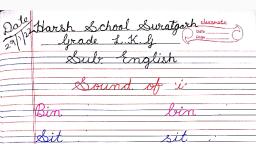 Date
29/1/22
Harsh School Suratgarh
classmate
Date
Page
Grade L.K.G
Sub. English
Sound of 'i'
Bin bin
Sit sit